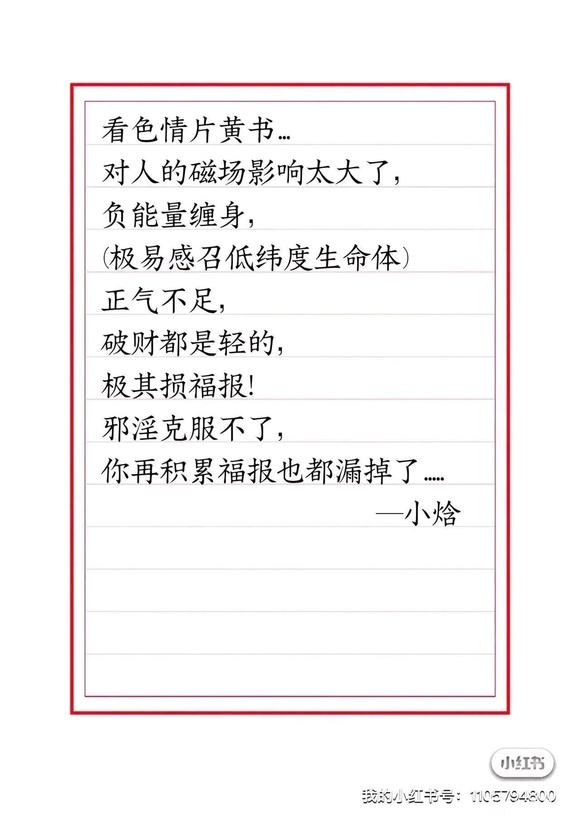 看色情片黄书...
对人的磁场影响太大了,
负能量缠身,
(极易感召低纬度生命体)
正气不足,
破财都是轻的,
极其损福报!
邪淫克服不了,
你再积累福报也都漏掉了.....
—小焓
小红书
我的小红书号：1105794800